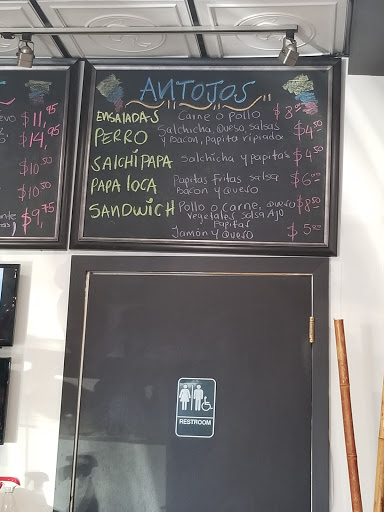 evo $11,95
$14,95
$10,50
$10,50
$9,75
ANTOJOS
ENSALADAS Carne o Pollo
PERRO Salchicha, queso, salsas $4,50
y bacon, papita ripiada
SALCHIPAPA Salchicha y papitas $4,50
PAPA LOCA Papitas fritas salsa $6,00
Bacon y Queso
SANDWICH Pollo o carne, queso $8,50
vegetales salsa Ajo
papitas
Jamón y queso $5,00
RESTROOM